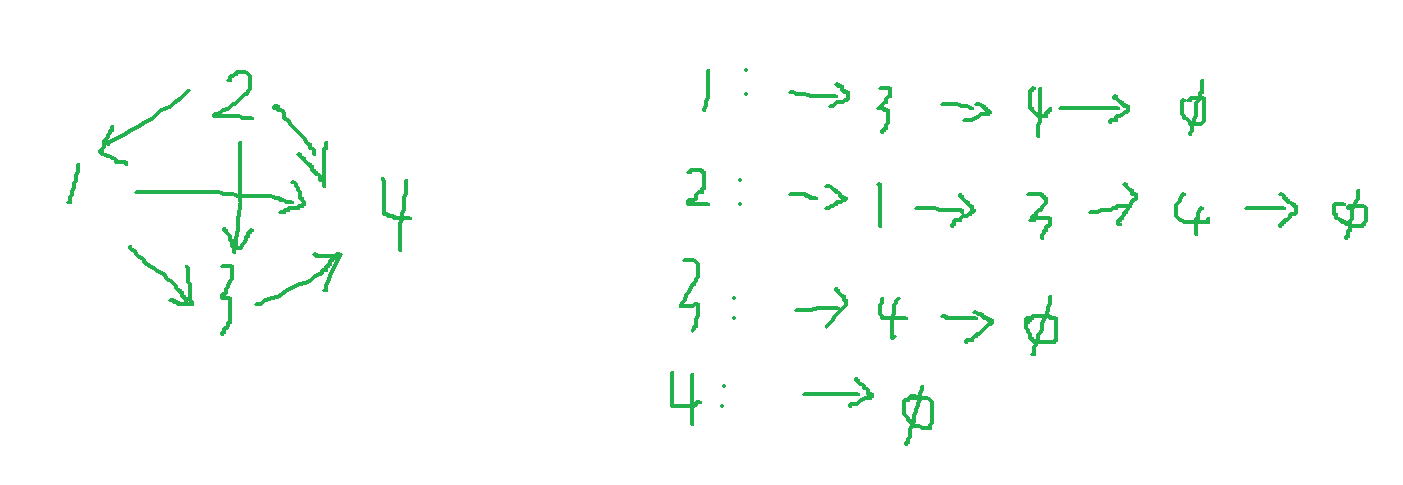 2
1
4
3
1: → 3 → 4 → ∅
2: → 1 → 3 → 4 → ∅
3: → 4 → ∅
4: → ∅